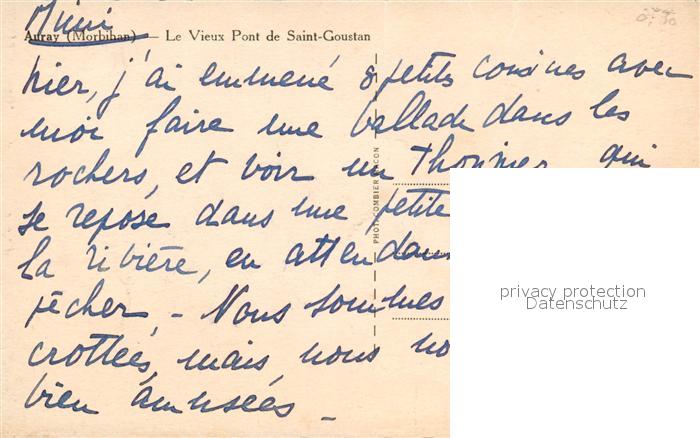 Mimi
Auray (Morbihan) — Le Vieux Pont de Saint-Goustan
hier, j'ai emmené 8 petits cousines avec
moi faire une ballade dans les
rochers, et voir un Thonier qui
se repose dans une petite
la rivière, en attendant
pêcher, - Nous sommes
crottées, mais nous no
bien amusées -
PHOT. COMBIER MACON
privacy protection
Datenschutz